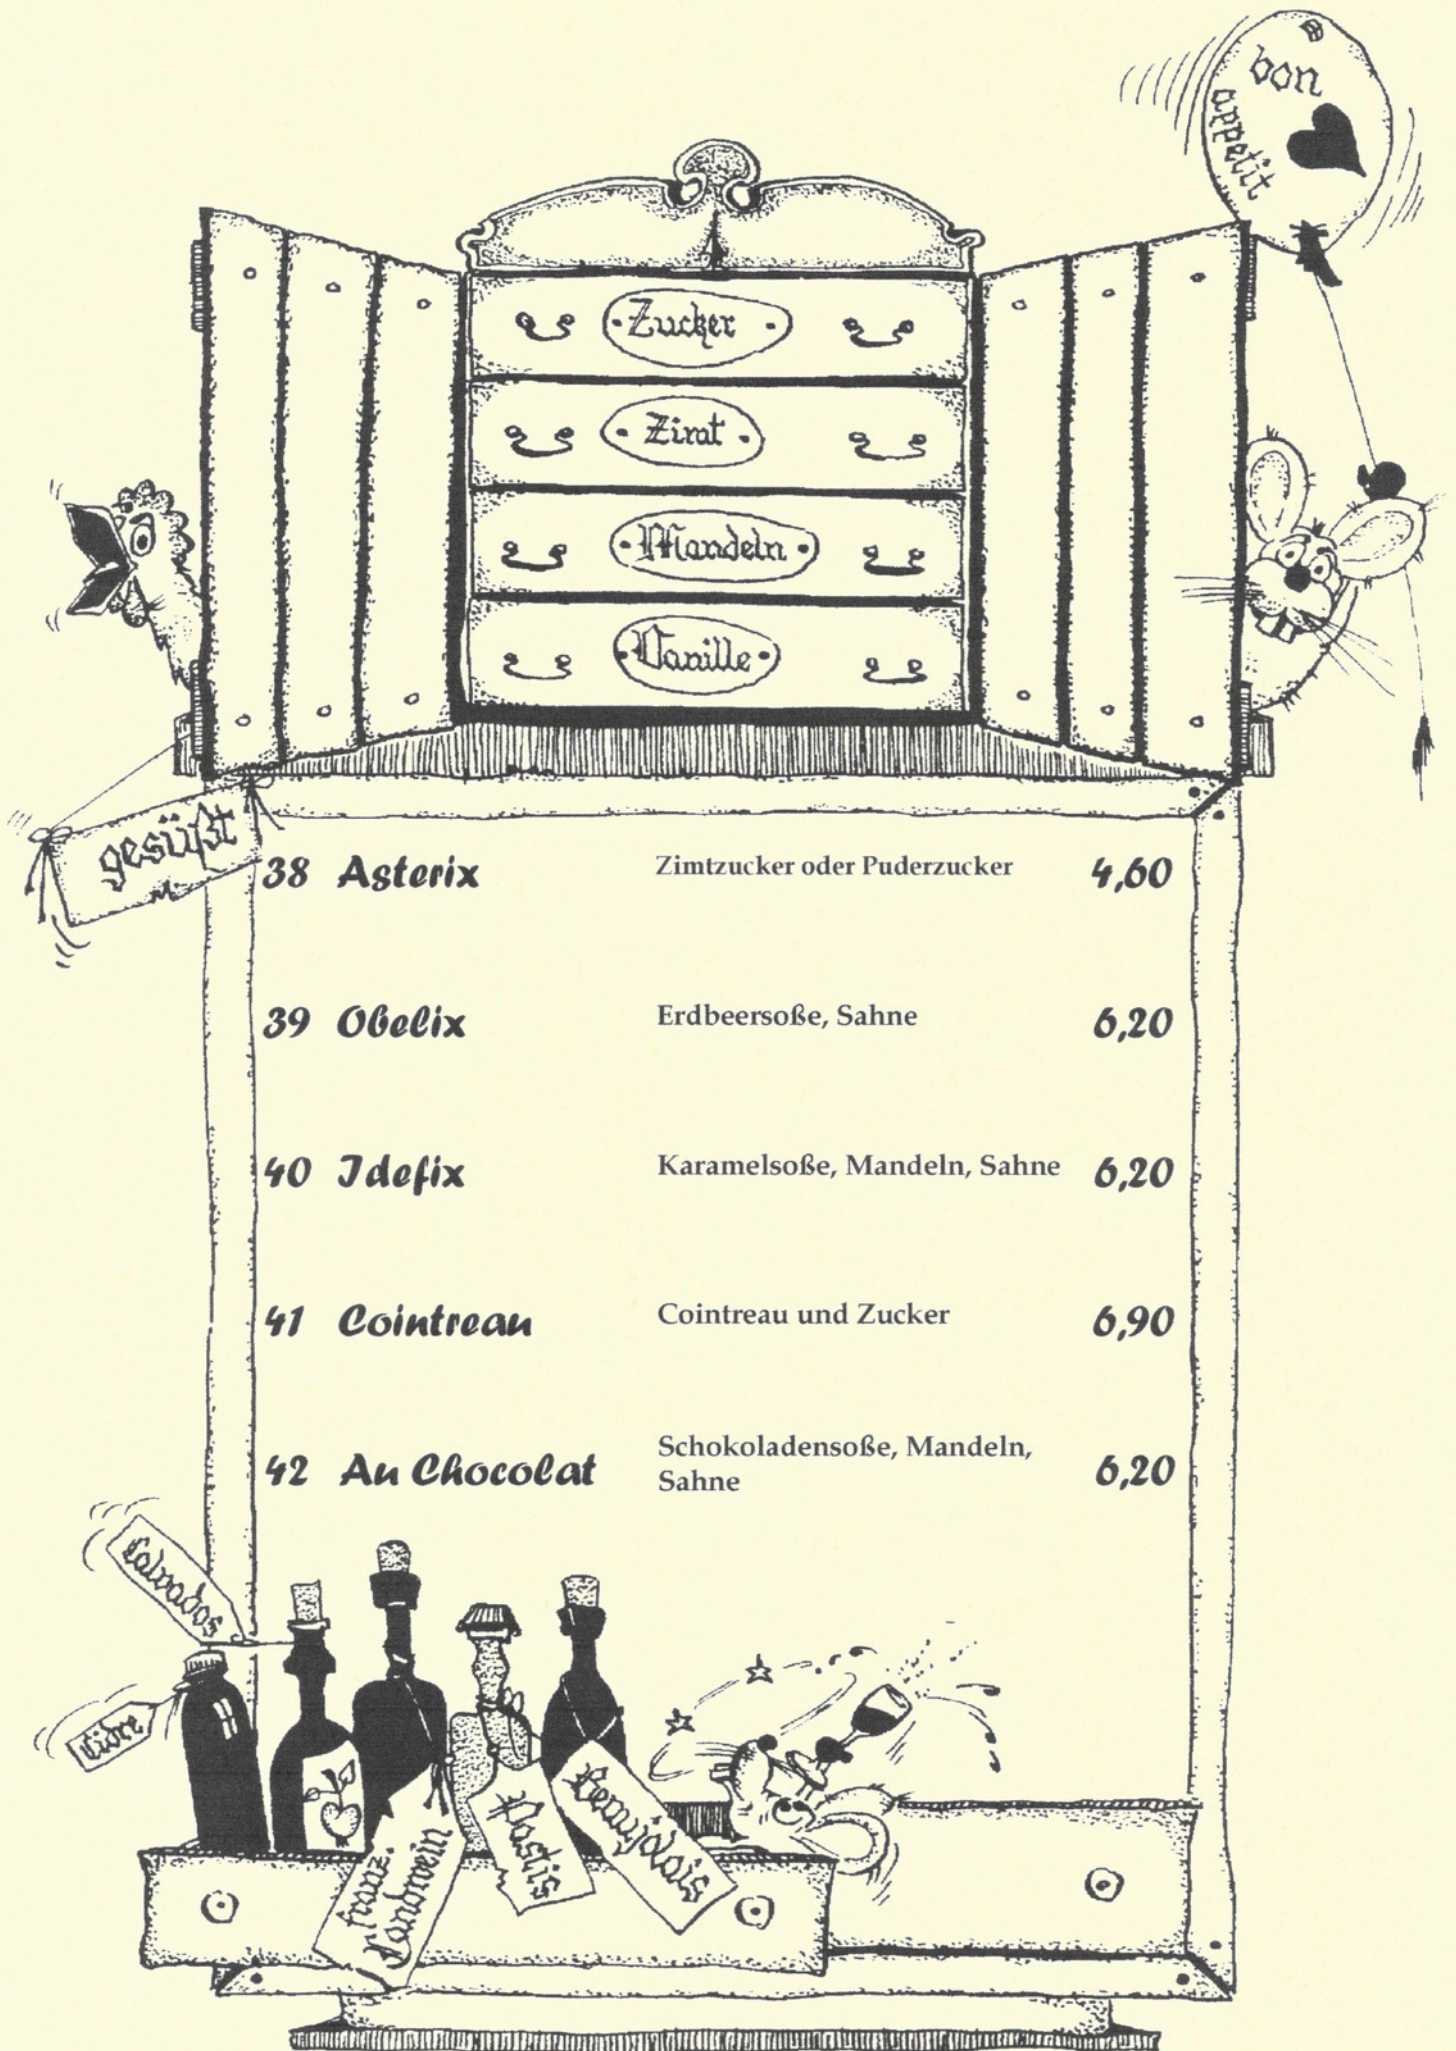 bon
appetit
Zucker
Zimt
Mandeln
Vanille
gesüßt
38 Asterix Zimtzucker oder Puderzucker 4,60
39 Obelix Erdbeersoße, Sahne 6,20
40 Idefix Karamelsoße, Mandeln, Sahne 6,20
41 Cointreau Cointreau und Zucker 6,90
42 Au Chocolat Schokoladensoße, Mandeln,
Sahne 6,20
Calvados
Cidre
franz.
Landwein
Pastis
Beaujolais